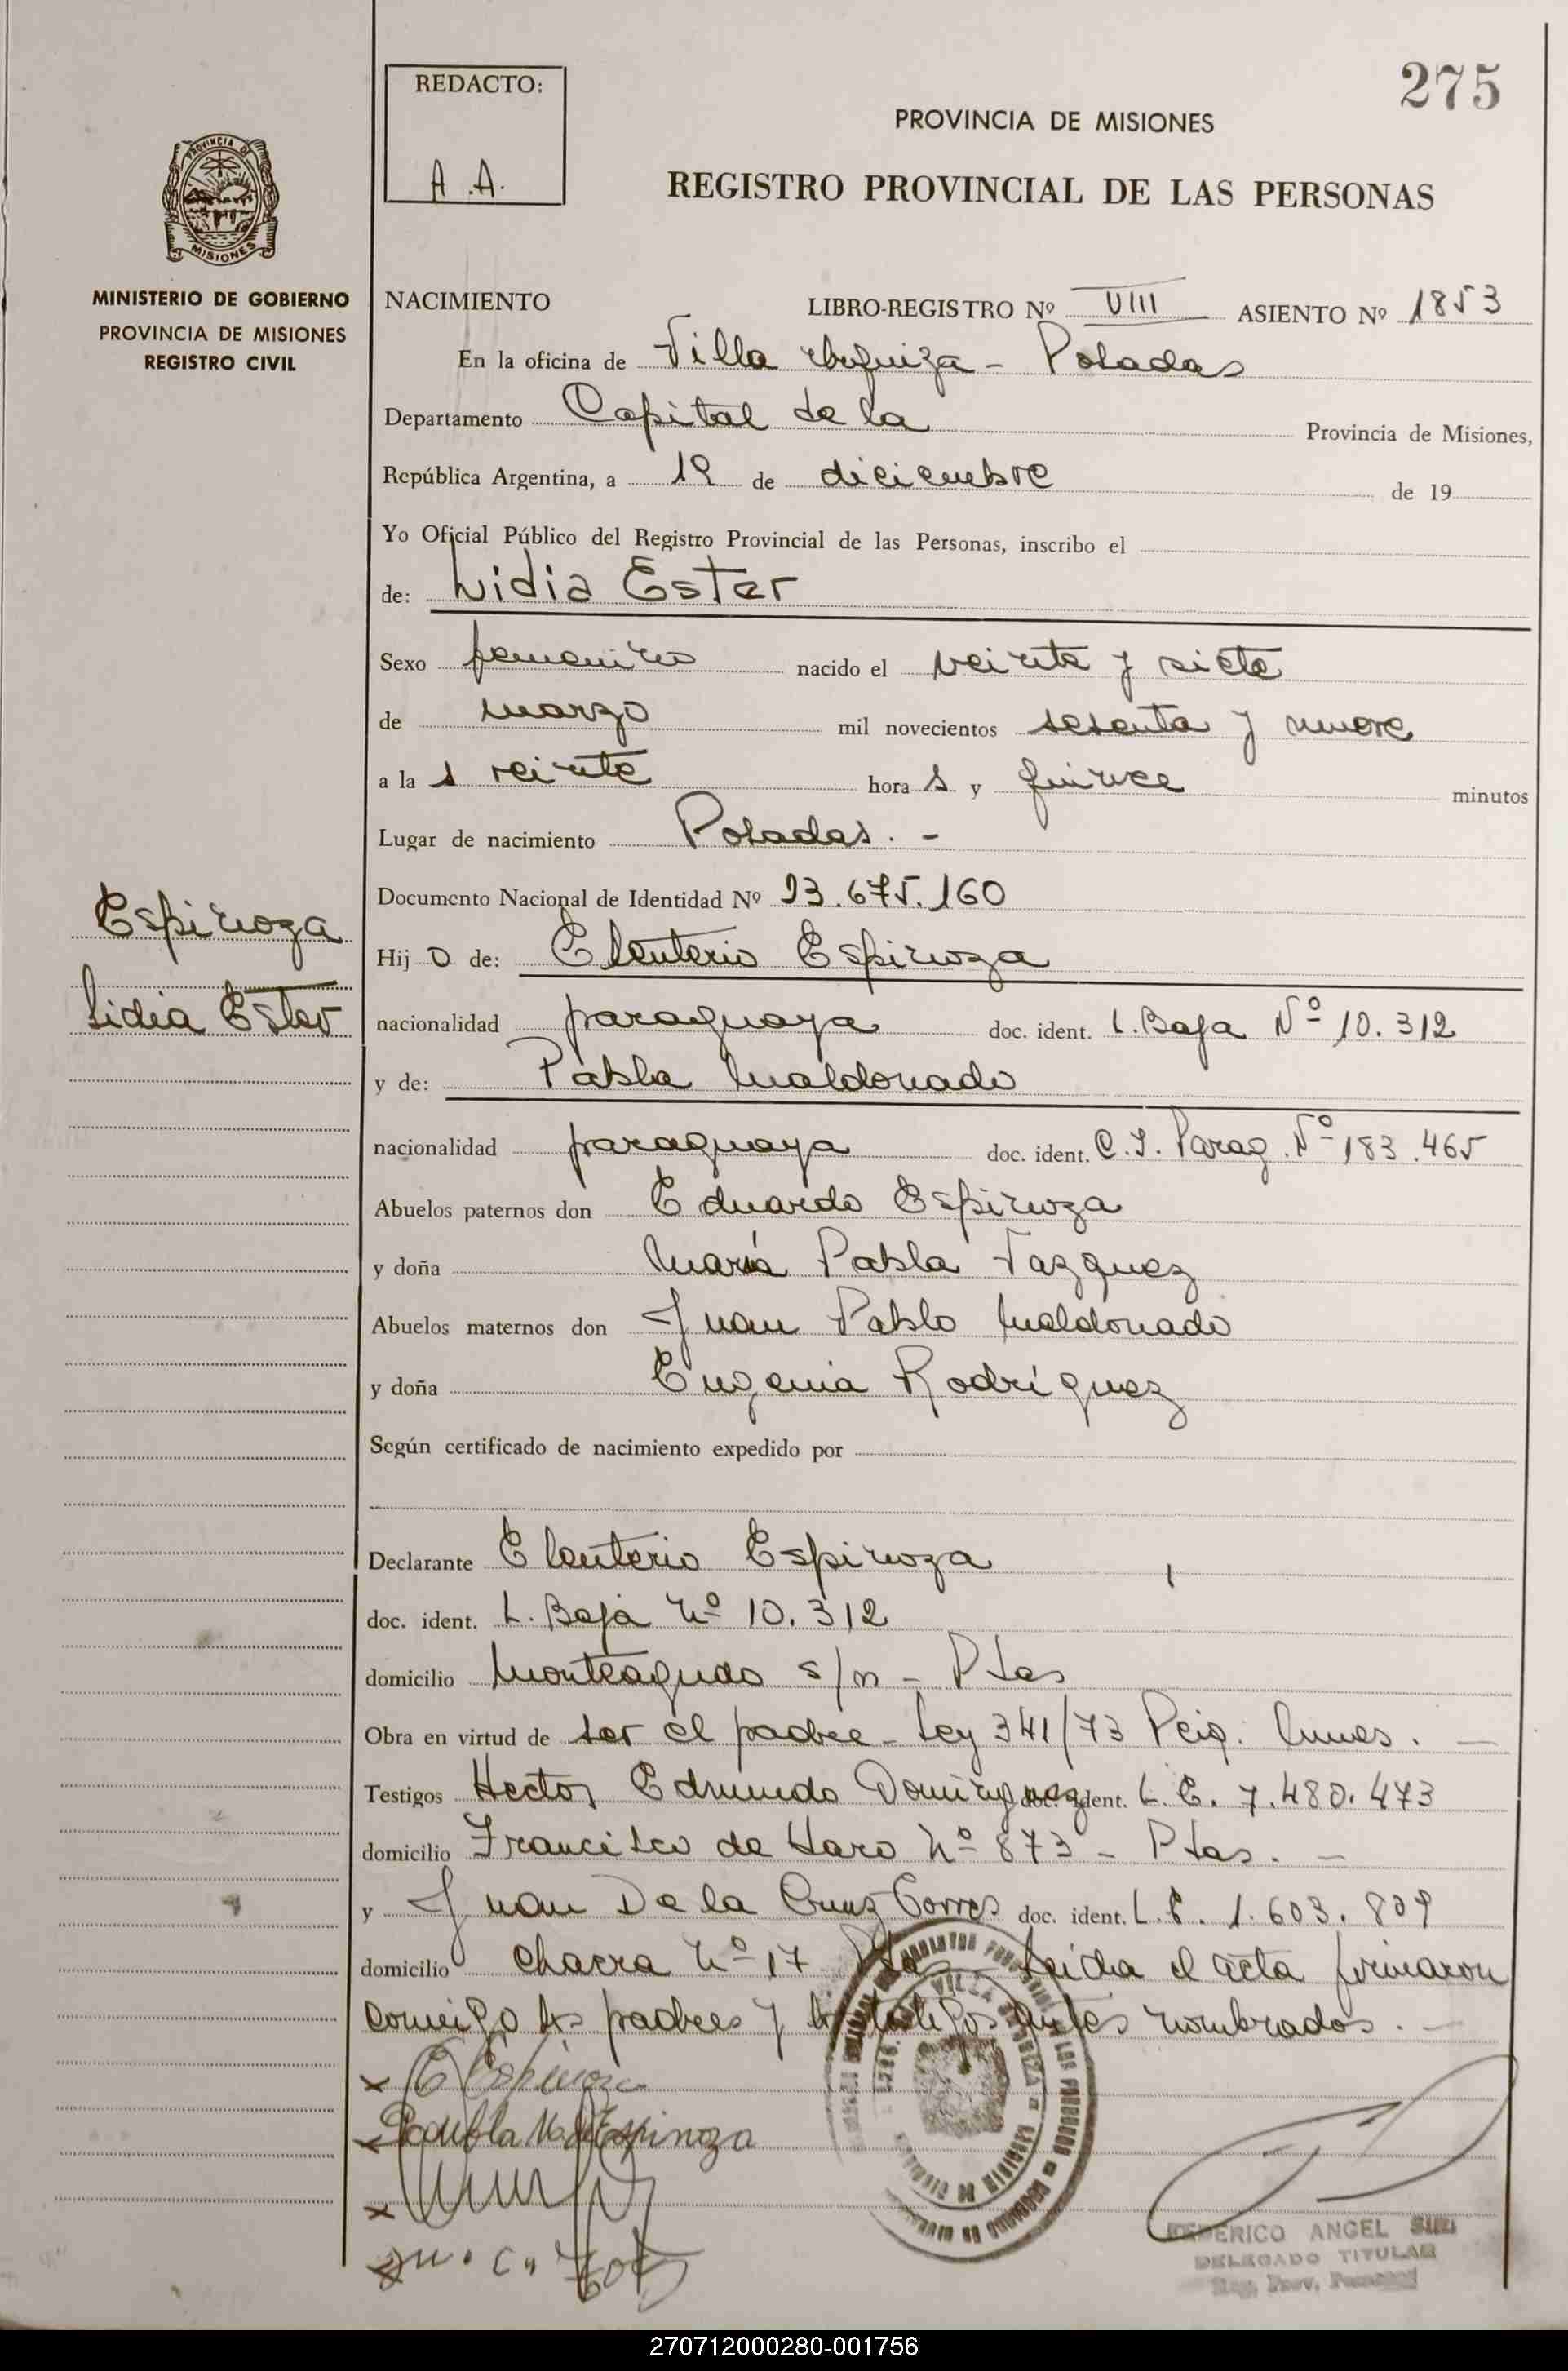 275
REDACTO:
A.A.
PROVINCIA DE MISIONES
REGISTRO PROVINCIAL DE LAS PERSONAS
PROVINCIA DE
MISIONES
MINISTERIO DE GOBIERNO
PROVINCIA DE MISIONES
REGISTRO CIVIL
NACIMIENTO LIBRO-REGISTRO Nº VIII ASIENTO Nº 1853
En la oficina de Villa Urquiza - Posadas
Departamento Capital de la Provincia de Misiones,
República Argentina, a 12 de diciembre de 19
Yo Oficial Público del Registro Provincial de las Personas, inscribo el
de: Lidia Ester
Sexo femenino nacido el veinte y siete
de marzo mil novecientos sesenta y nueve
a la s veinte hora s y quince minutos
Lugar de nacimiento Posadas. -
Documento Nacional de Identidad Nº 23.675.160
Espinoza
Lidia Ester
Hij a de: Eleuterio Espinoza
nacionalidad paraguaya doc. ident. L. Baja Nº 10.312
y de: Pabla Maldonado
nacionalidad paraguaya doc. ident. C.I. Parag. Nº 183.465
Abuelos paternos don Eduardo Espinoza
y doña María Pabla Vazquez
Abuelos maternos don Juan Pablo Maldonado
y doña Eugenia Rodríguez
Según certificado de nacimiento expedido por
Declarante Eleuterio Espinoza
doc. ident. L. Baja Nº 10.312
domicilio Monteagudo s/n - Pdas
Obra en virtud de ser el padre - Ley 341/73
Testigos Hector Edmundo Dominguez doc. ident. L.E. 7.480.473
domicilio Francisco de Haro Nº 873 - Pdas. -
y Juan De la Cruz Torres doc. ident. L.E. 1.603.809
domicilio chacra Nº 17 Pdas - Leida el acta firmaron
conmigo los padres y los testigos antes nombrados. -
E Espinoza
Pabla M. de Espinoza
FEDERICO ANGEL
DELEGADO TITULAR
270712000280-001756